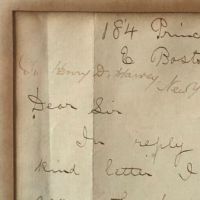 184 Princ
E Bost
Henry D. Harvey
New Y
Dear Sir
In reply
kind letter I